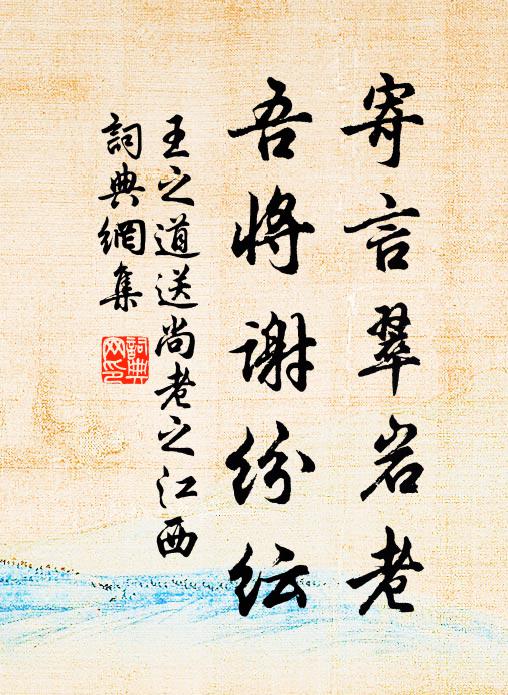 寄言翠岩老
吾將謝紛紜
王之道送尚老之江西
詞典網集
詞典网印